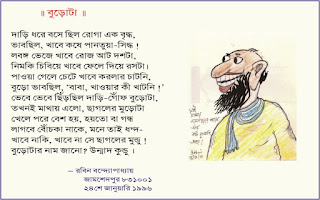 ॥ বুড়োটা ॥
দাড়ি ধরে বসে ছিল রোগা এক বৃদ্ধ,
ভাবছিল, খাবে কষে পানতুয়া-সিদ্ধ !
লবঙ্গ ভেজে খাবে রোজ আট দশটা,
নিমকি চিবিয়ে খাবে ফেলে দিয়ে রসটা।
পাওয়া গেলে চেটে খাবে করলার চাটনি,
বুড়ো ভাবছিল, 'বাবা, খাওয়ার কী খাটনি !'
ভেবে ভেবে ছিঁড়ছিল দাড়ি-গোঁফ বুড়োটা,
তখনই মাথায় এলো, ছাগলের মুড়োটা
খেলে পরে বেশ হয়, হয়তো বা গন্ধ
লাগবে বোঁচকা নাকে, মনে তাই ধন্দ-
খাবে নাকি, খাবে না সে ছাগলের মুন্ডু !
বুড়োটার নাম জানো? উন্মাদ কুন্ডু ।
– রবিন বন্দ্যোপাধ্যায়
জামশেদপুর ৮৩১০০১
২৪শে জানুয়ারি ১৯৯৬